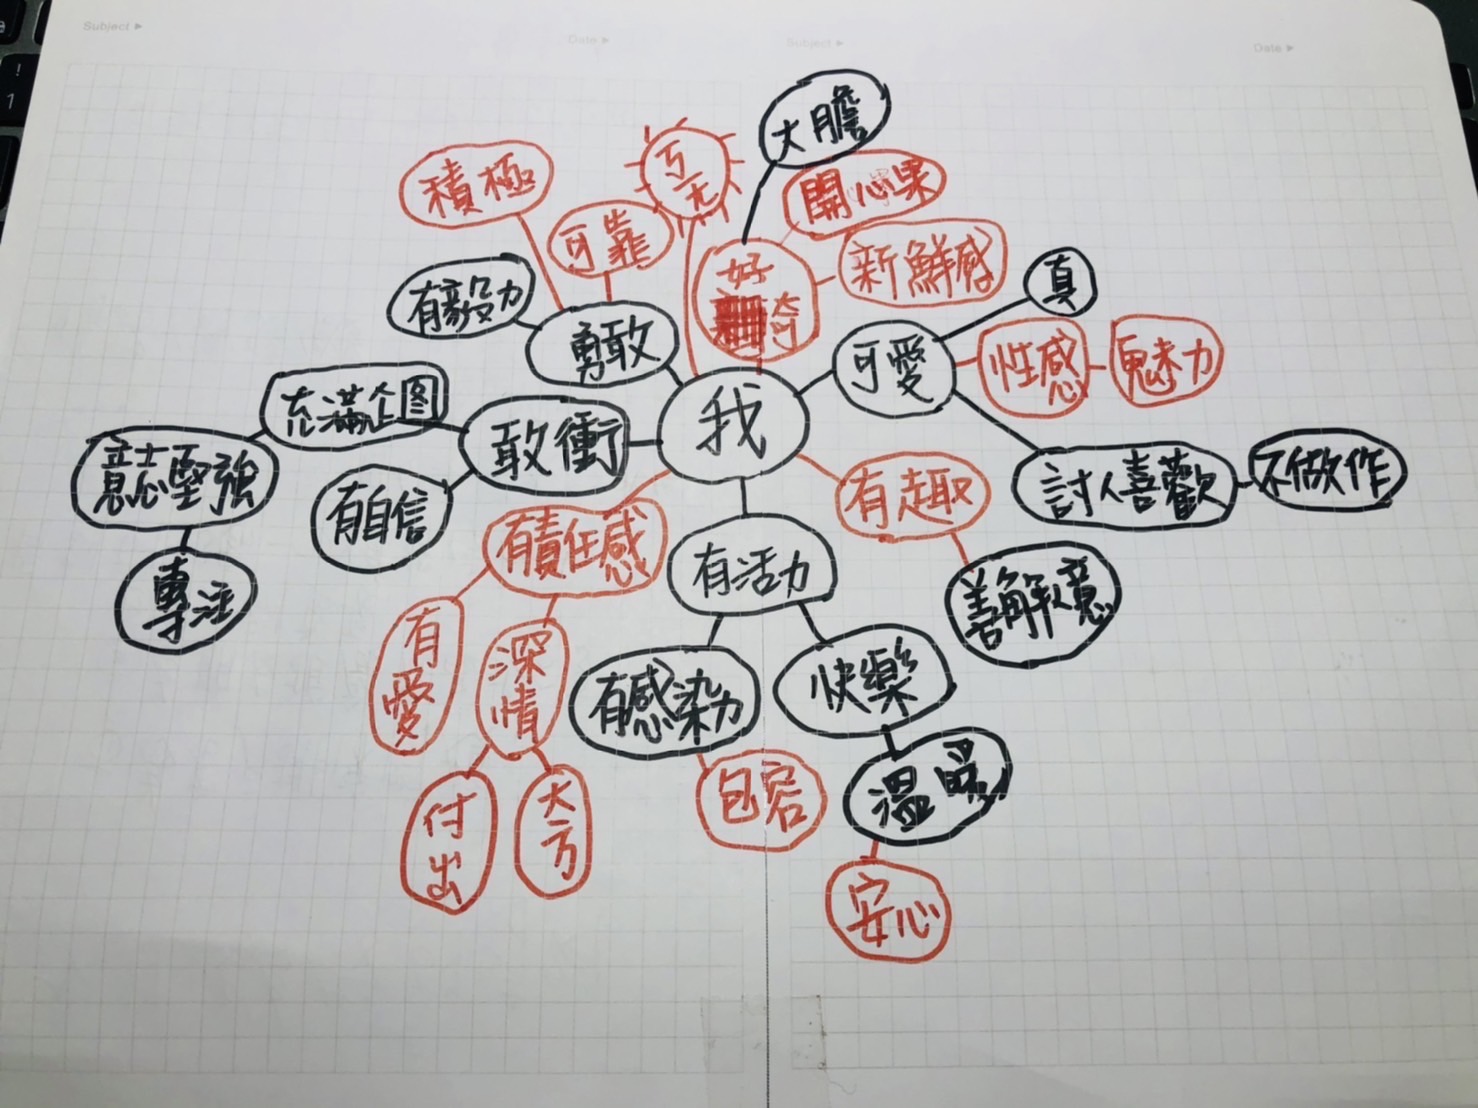 Subject ▶
Date ▶
Subject ▶
Date ▶
大膽
積極
可靠
開心果
好
奇
新鮮感
真
有毅力
勇敢
可愛
性感
魅力
充滿企图
敢衝
我
意志堅強
有自信
有趣
討人喜歡
不做作
專注
有責任感
有活力
善解人意
有
愛
深
情
有感染力
快樂
付
出
大
方
包容
溫暖
安心